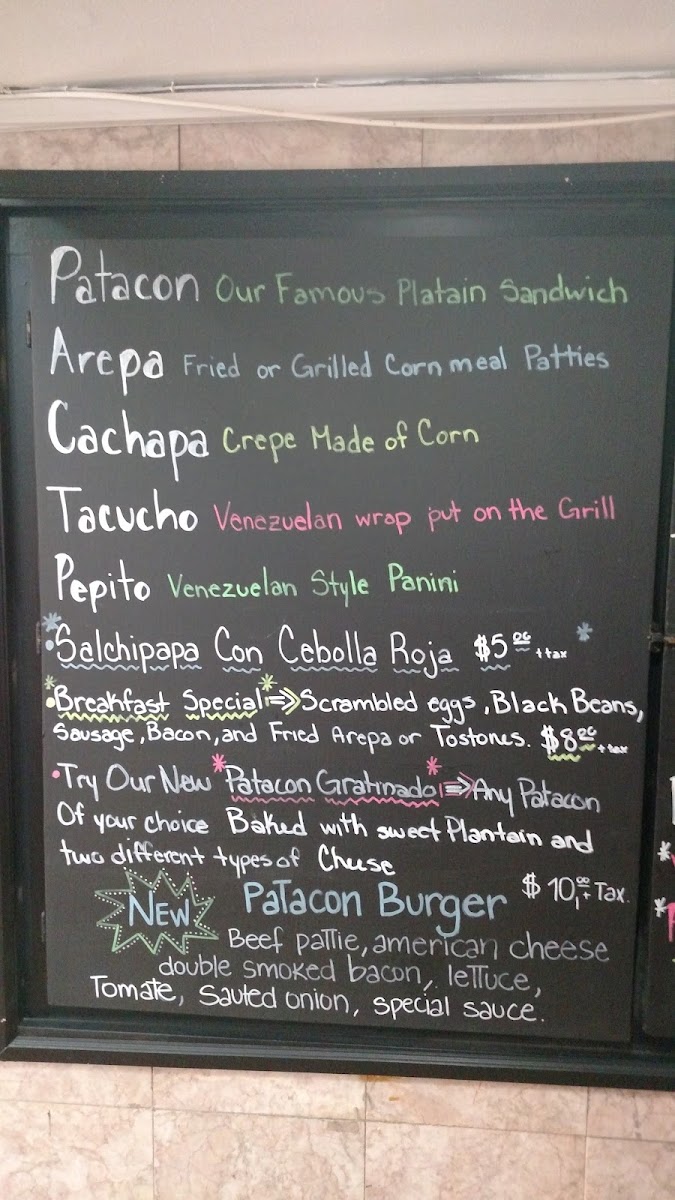 Patacon Our Famous Platain Sandwich
Arepa Fried or Grilled Corn meal Patties
Cachapa Crepe Made of Corn
Tacucho Venezuelan wrap put on the Grill
Pepito Venezuelan Style Panini
*•Salchipapa Con Cebolla Roja $5.00 + tax *
*•Breakfast Special* ⇒ Scrambled eggs, Black Beans,
Sausage, Bacon, and Fried Arepa or Tostones. $8.00 + tax
•Try Our New *Patacon Gratinado* ⇒ Any Patacon
Of your choice Baked with sweet Plantain and
two different types of Cheese
$10.00 + Tax.
NEW Patacon Burger
Beef pattie, american cheese
double smoked bacon, lettuce,
Tomate, Sauted onion, special sauce.